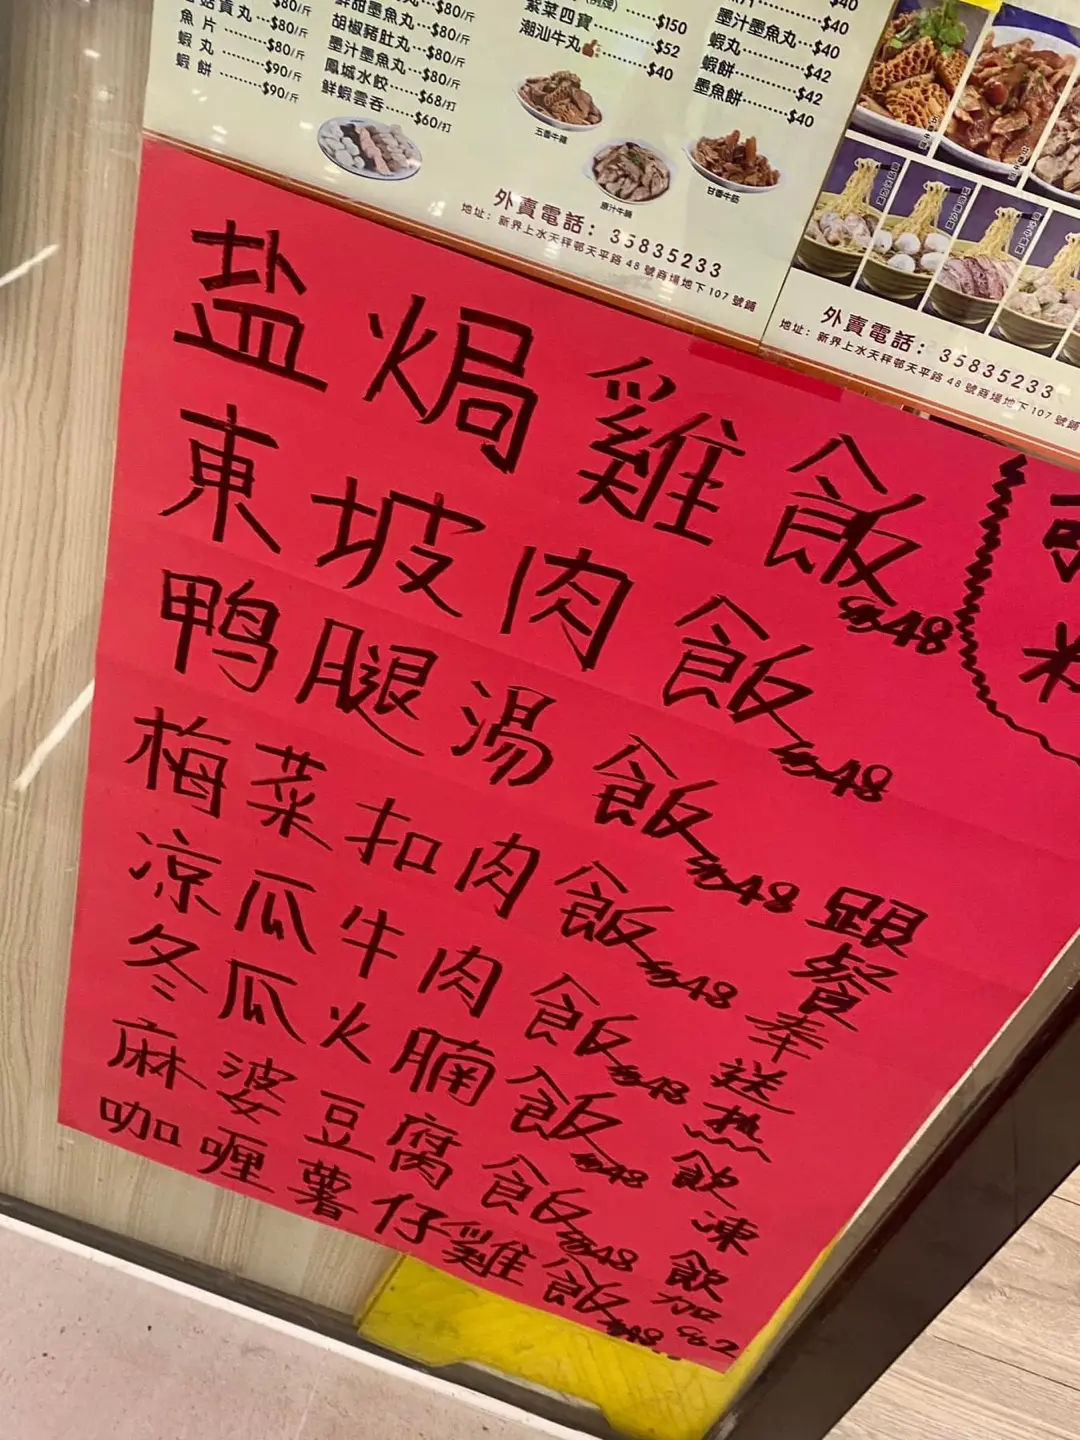 $80/斤
貢丸…$80/斤
魚片………$80/斤
蝦丸………$90/斤
蝦餅………$90/斤
$80/斤
鮮甜墨魚丸…$80/斤
胡椒豬肚丸…$80/斤
墨汁墨魚丸…$80/斤
鳳城水餃……$68/打
鮮蝦雲吞……$60/打
紫菜四寶………$150
$52
潮汕牛丸………$40
$40
墨汁墨魚丸…$40
蝦丸…………$42
蝦餅…………$42
墨魚餅………$40
五香牛腩
原汁牛腩
甘香牛筋
外賣電話：35835233
地址：新界上水天秤邨天平路48號商場地下107號鋪
外賣電話：35835233
地址：新界上水天秤邨天平路48號商場地下107號鋪
盐焗雞飯 48
東坡肉飯 48
鸭腿湯飯 48
梅菜扣肉飯 48
凉瓜牛肉飯 48
冬瓜火腩飯 48
麻婆豆腐飯 48
咖喱薯仔雞飯 48
跟餐奉送热飲凍飲加2